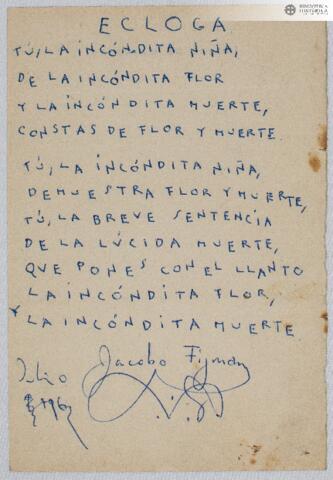 ECLOGA
TÚ, LA INCÓNDITA NIÑA,
DE LA INCÓNDITA FLOR
Y LA INCÓNDITA MUERTE,
CONSTAS DE FLOR Y MUERTE.
TÚ, LA INCÓNDITA NIÑA,
DEMUESTRA FLOR Y MUERTE,
TÚ, LA BREVE SENTENCIA
DE LA LÚCIDA MUERTE,
QUE PONES CON EL LLANTO
LA INCÓNDITA FLOR,
Y LA INCÓNDITA MUERTE
Jacobo Fijman
Julio